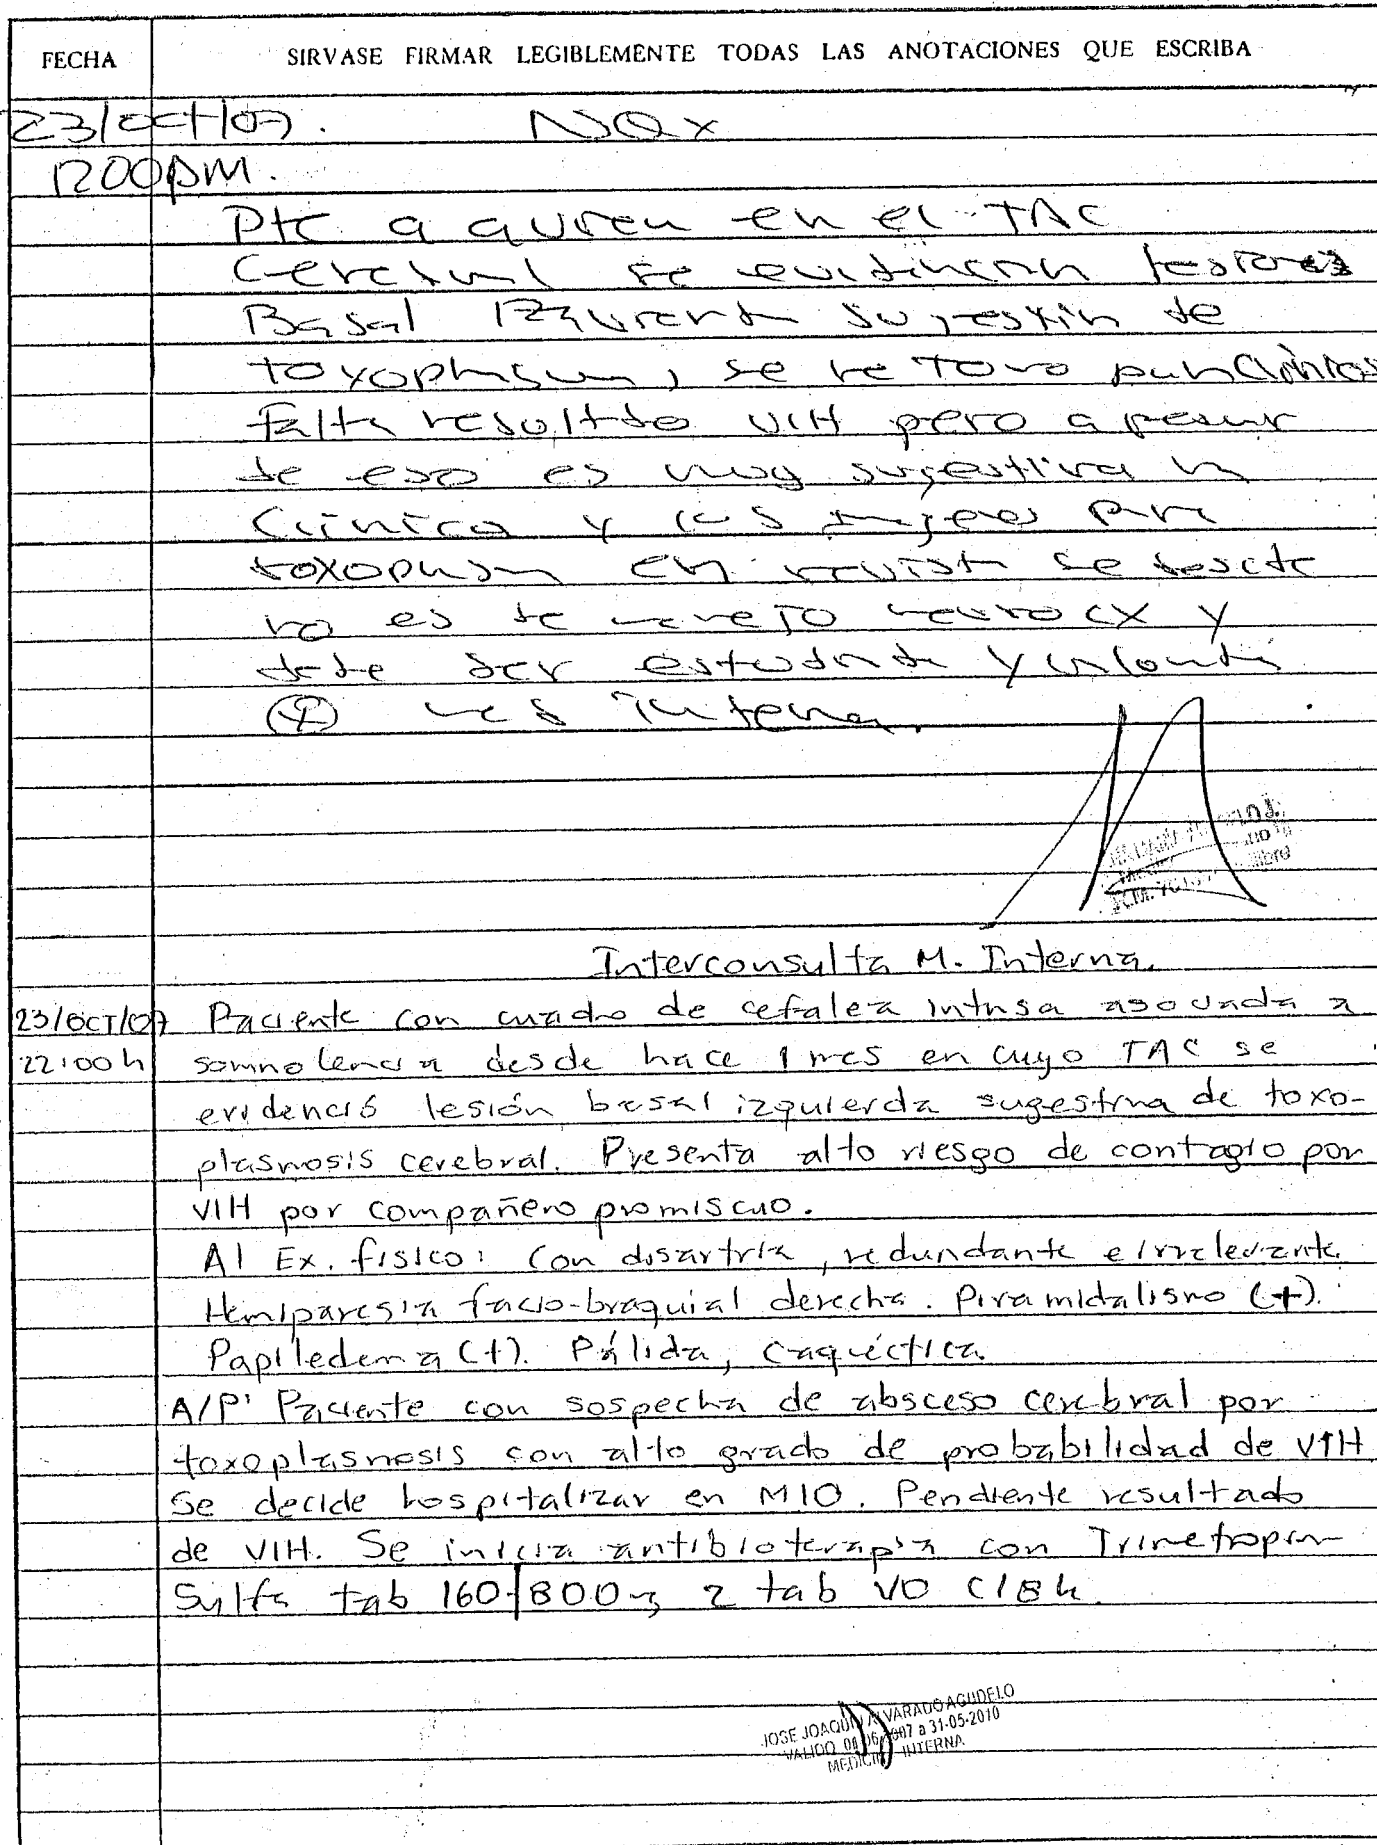 FECHA SIRVASE FIRMAR LEGIBLEMENTE TODAS LAS ANOTACIONES QUE ESCRIBA
23/oct/07. NQx
1200pm.
Pte a quien en el TAC
cerebral se evidencian lesiones
Basal Izquierda sugestiva de
toxoplasma, se
falta resultado VIH pero a pesar
de eso es muy sugestiva la
Clinica y las para
toxoplasma en se
no es de manejo neuro cx y
debe ser estudiada y valorada
Interna.
Interconsulta M. Interna.
23/OCT/07 Paciente con cuadro de cefalea intnsa asociada a
22:00 h somnolencia desde hace 1 mes en cuyo TAC se
evidenció lesión basal izquierda sugestiva de toxo-
plasmosis cerebral. Presenta alto riesgo de contagio por
VIH por compañero promiscuo.
Al Ex. físico: Con disartria, redundante e irrelevante.
Hemiparesia facio-braquial derecha. Piramidalismo (+).
Papiledema (+). Pálida, caquéctica.
A/P: Paciente con sospecha de absceso cerebral por
toxoplasmosis con alto grado de probabilidad de VIH
Se decide hospitalizar en MIO. Pendiente resultado
de VIH. Se inicia antibioterapia con Trimetoprin
Sulfa tab 160/800 2 tab VO c/8h.
JOSE JOAQUIN ALVARADO AGUDELO
VALIDO 2007 a 31-05-2010
MEDICINA INTERNA